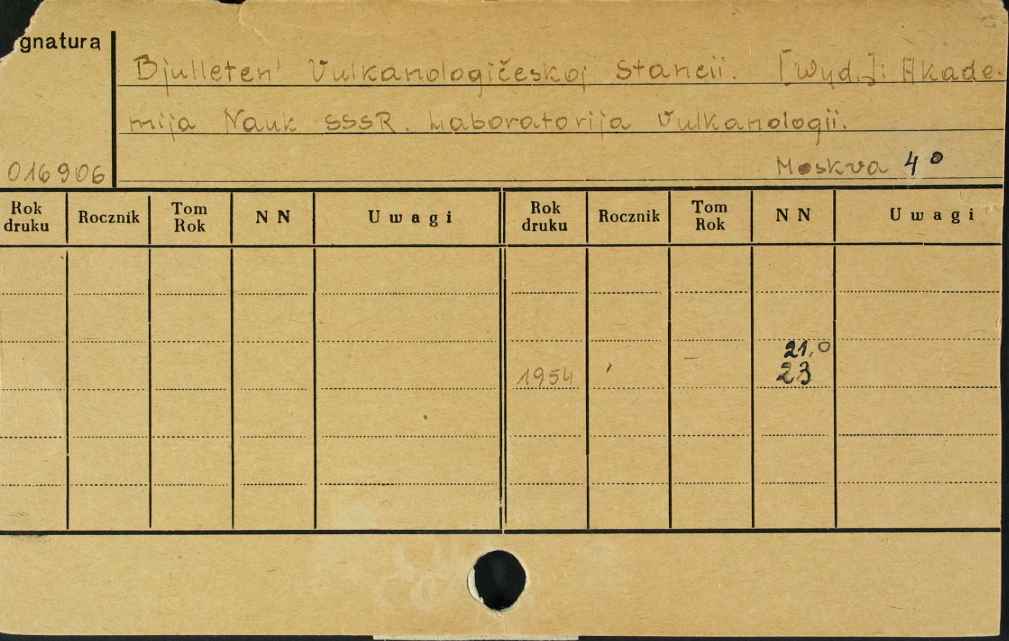 gnatura
Bjulleten' Vulkanologičeskoj Stancii. [Wyd.]: Akade-
mija Nauk SSSR. Laboratorija Vulkanologii.
016906 Moskva 4°
Rok druku Rocznik Tom Rok NN Uwagi Rok druku Rocznik Tom Rok NN Uwagi
21,0
1954 - 23